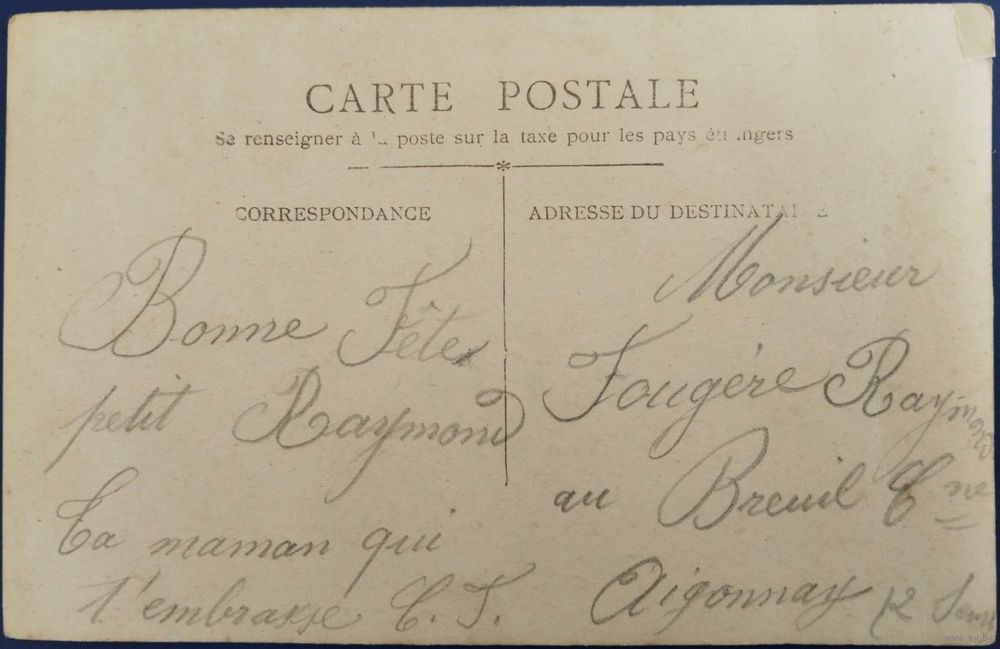 CARTE POSTALE
Se renseigner à la poste sur la taxe pour les pays étrangers
CORRESPONDANCE
Bonne Fête
petit Raymond
Ta maman qui
t'embrasse
ADRESSE DU DESTINATAIRE
Monsieur
Fougère Raymond
au Breuil Cne
Aigonnay
www.ay.by